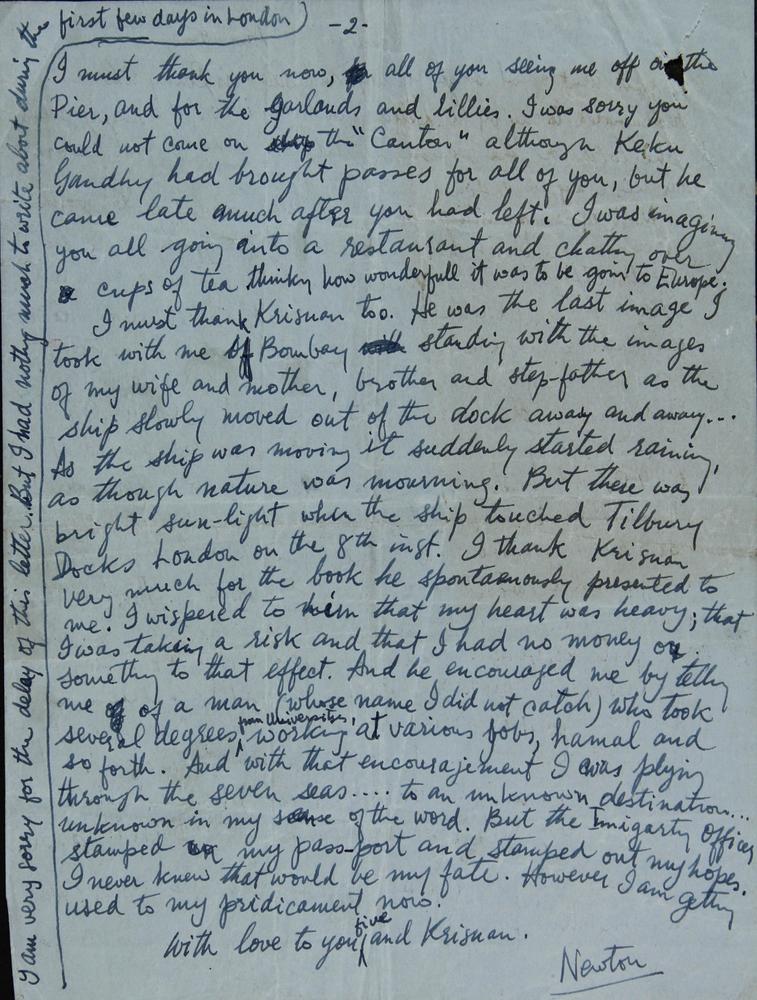 -2-
I must thank you now, all of you seeing me off on the
Pier, and for the Garlands and lillies. I was sorry you
could not come on ship the "Canton" although Keku
Gandhy had brought passes for all of you, but he
came late much after you had left. I was imagining
you all going into a restaurant and chatting over
cups of tea thinking how wonderfull it was to be going to Europe.
I must thank Krisnan too. He was the last image I
took with me of Bombay with standing with the images
of my wife and mother, brother and step-father as the
ship slowly moved out of the dock away and away...
As the ship was moving it suddenly started raining,
as though nature was mourning. But there was
bright sun-light when the ship touched Tilbury
Docks London on the 8th inst. I thank Krisnan
very much for the book he spontaenously presented to
me. I wispered to him that my heart was heavy; that
I was taking a risk and that I had no money or
something to that effect. And he encouraged me by telling
me of a man (whose name I did not catch) who took
several degrees, from Universities, working at various jobs, hamal and
so forth. And with that encouragement I was plying
through the seven seas.... to an unknown destination...
unknown in my sense of the word. But the Imigarty officer
stamped my pass-port and stamped out my hopes.
I never knew that would be my fate. However I am getting
used to my pridicament now.
With love to you five and Krisnan.
Newton
I am very sorry for the delay of this letter. But I had nothing much to write about during the
first few days in London)